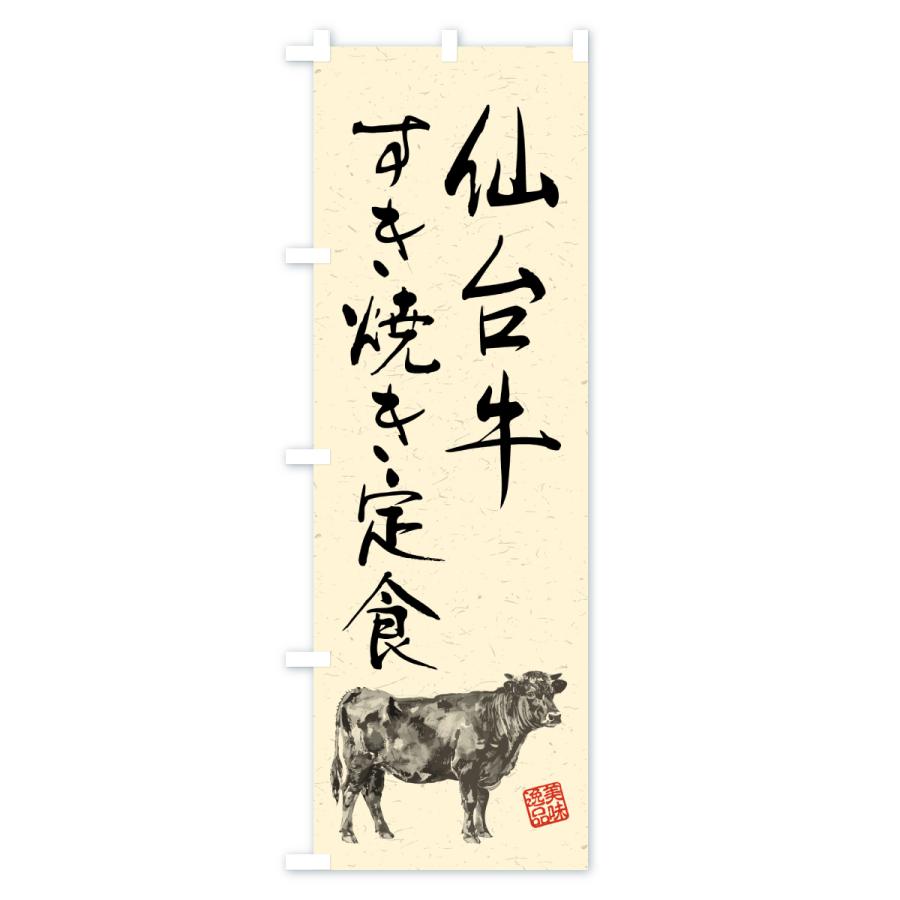 仙台牛
すき焼き定食
美味
逸品